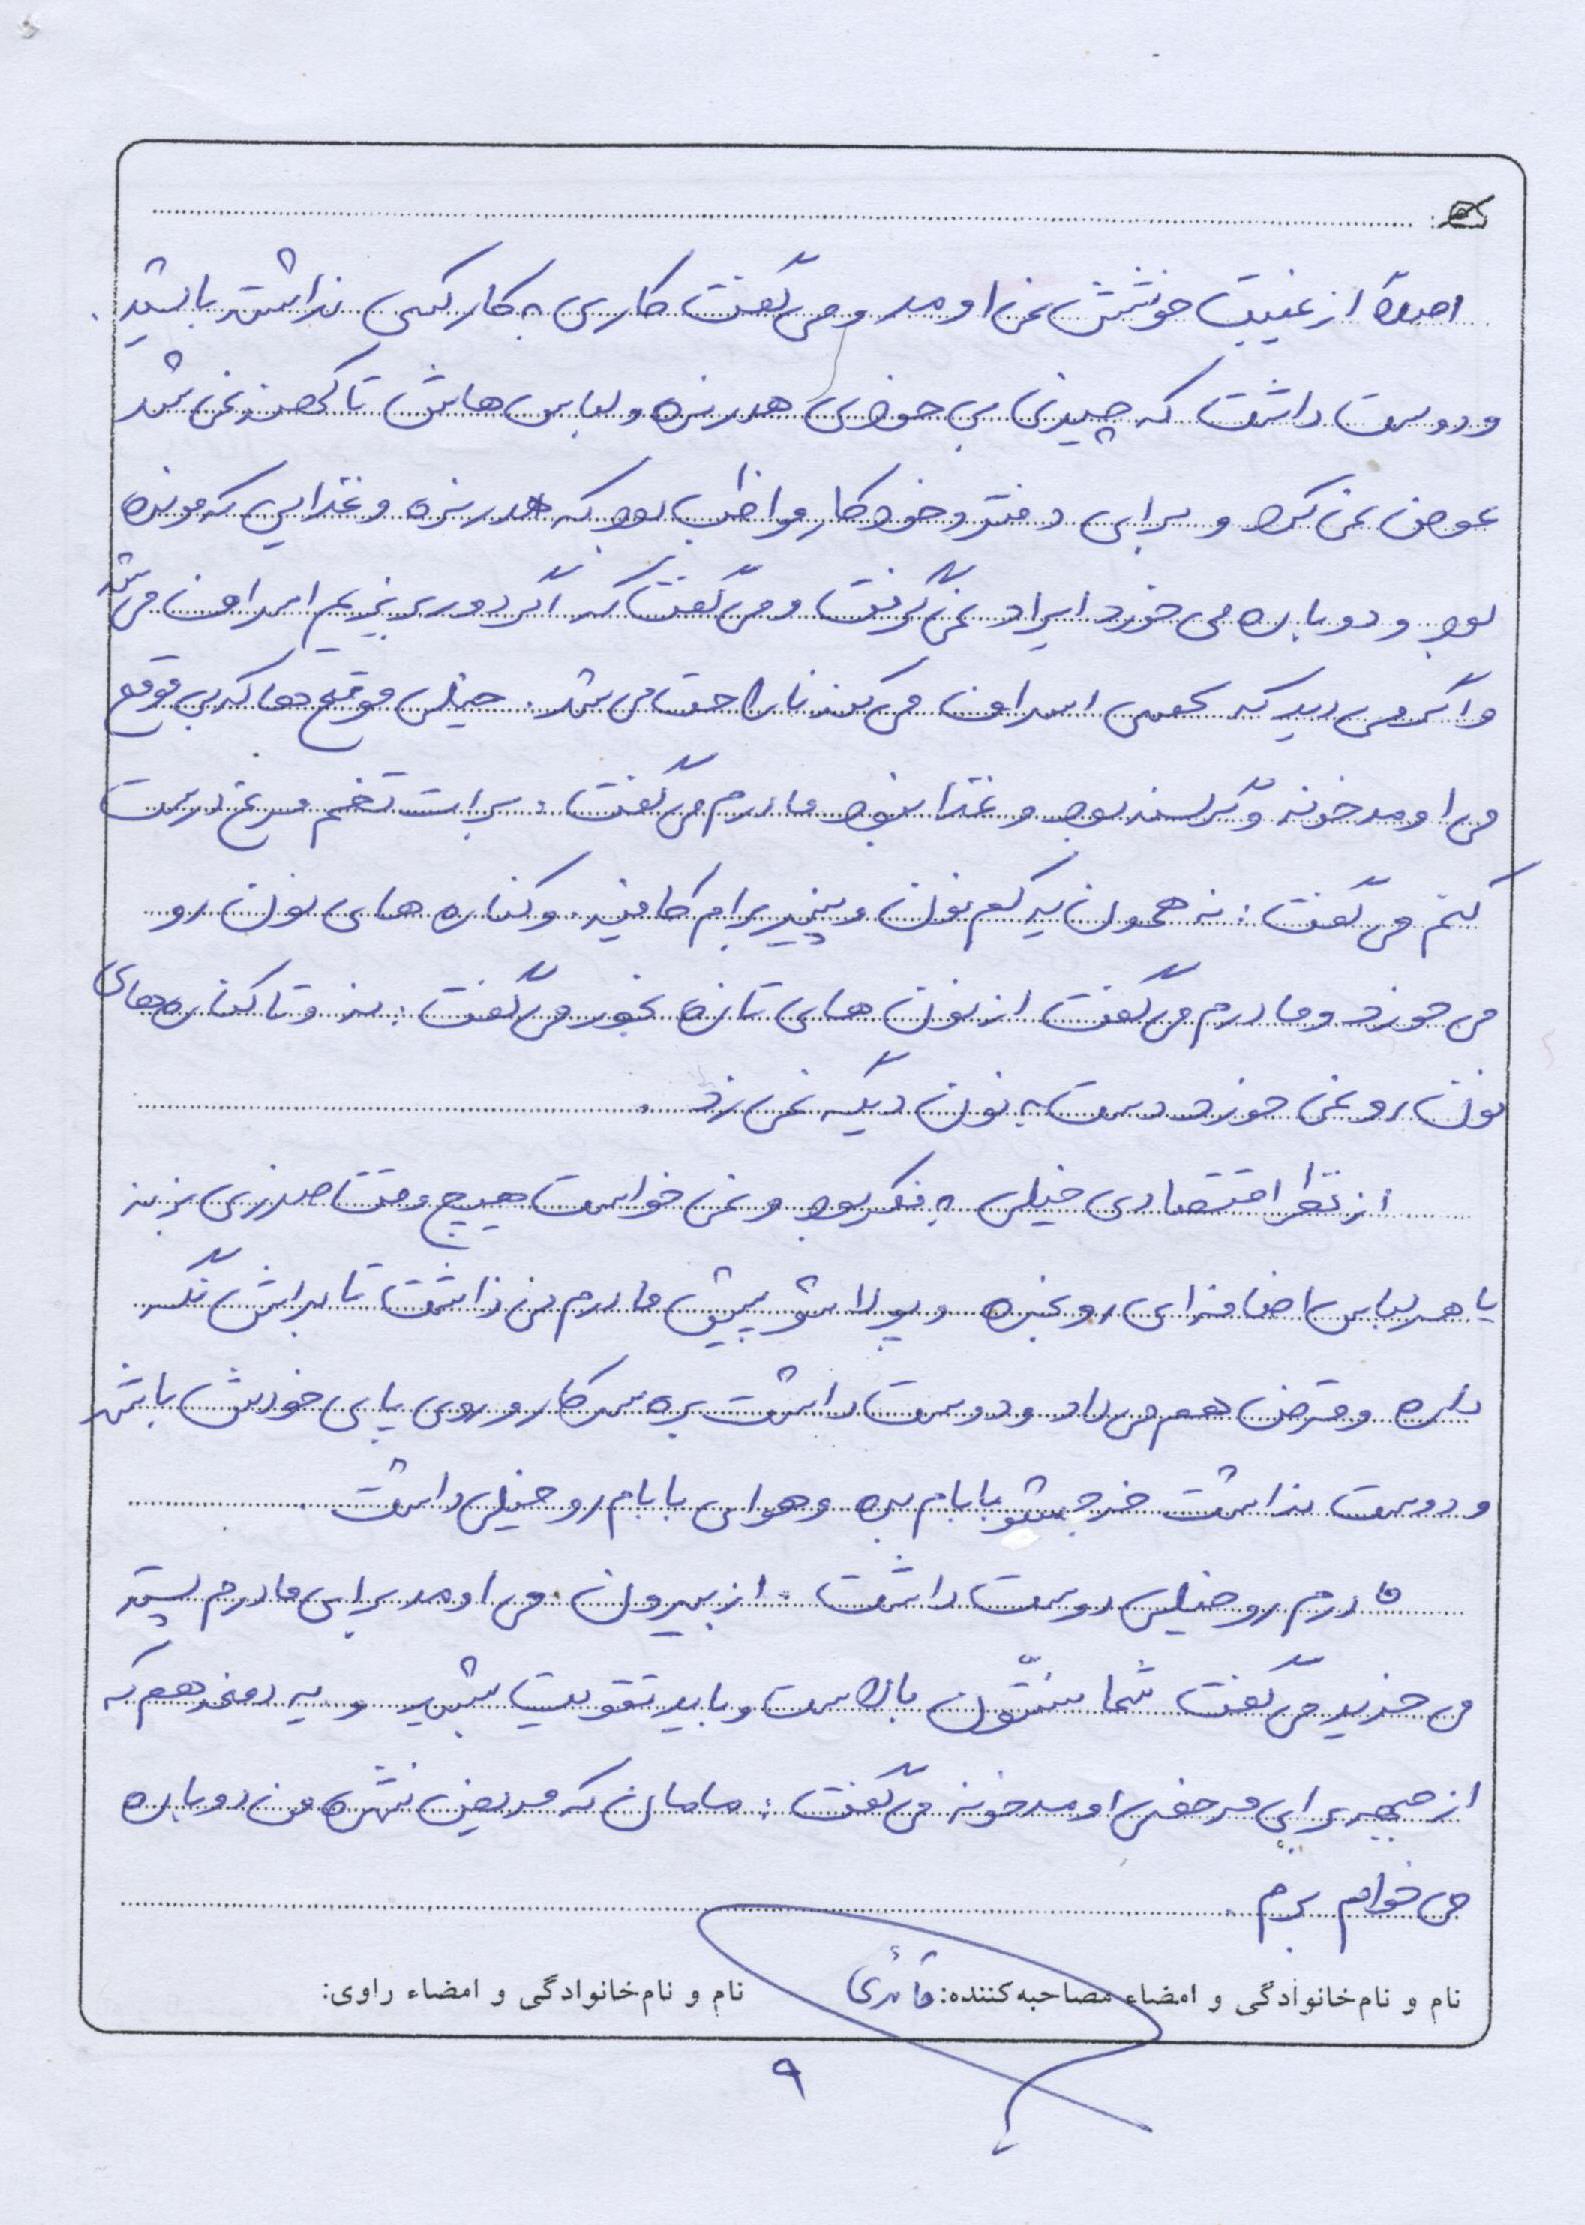 اصلاً از غیبت خوشش نمی اومد و می گفت کاری به کار کسی نداشته باشید.
و دوست داشت که چیزی بی خودی هدر نره و لباس هاش تا کهنه نمی شد
عوض نمی کرد و برای دفتر و خودکار مواظب بود که هدر نره و غذایی که مونده
بود و دوباره می خورد ایراد نمی گرفت و می گفت که اگر دور بریزیم اسراف می شه
و اگر می دید که کسی اسراف می کند ناراحت می شد. خیلی موقع ها که بی موقع
می اومد خونه و گرسنه بود و غذا نبود مادرم می گفت: برات تخم مرغ درست
کنم می گفت: نه همون یه کم نون و پنیر برام کافیه. و کناره های نون رو
می خورد و مادرم می گفت از نون های تازه بخور می گفت: نه و تا کناره های
نون رو نمی خورد دست به نون دیگه نمی زد.
از نظر اقتصادی خیلی به فکر بود و نمی خواست هیچ وقت ضرری بزنه
یا هر لباس اضافه ای رو نخره و پولاشو پیش مادرم می ذاشت تا براش نگه
داره و قرض هم می داد و دوست داشت بره سر کار و روی پای خودش باشه
و دوست نداشت خرجشو بابام بده و هوای بابام رو خیلی داشت.
مادرم رو خیلی دوست داشت. از بیرون می اومد برای مادرم پسته
می خرید می گفت شما سنتون بالاست و باید تقویت بشید و یه دفعه هم که
از جبهه برای مرخصی اومد خونه می گفت: مامان که مریض نشده من دوباره
می خوام برم.
نام و نام‌خانوادگی و امضاء مصاحبه‌کننده: قائدی نام و نام‌خانوادگی و امضاء راوی:
۹